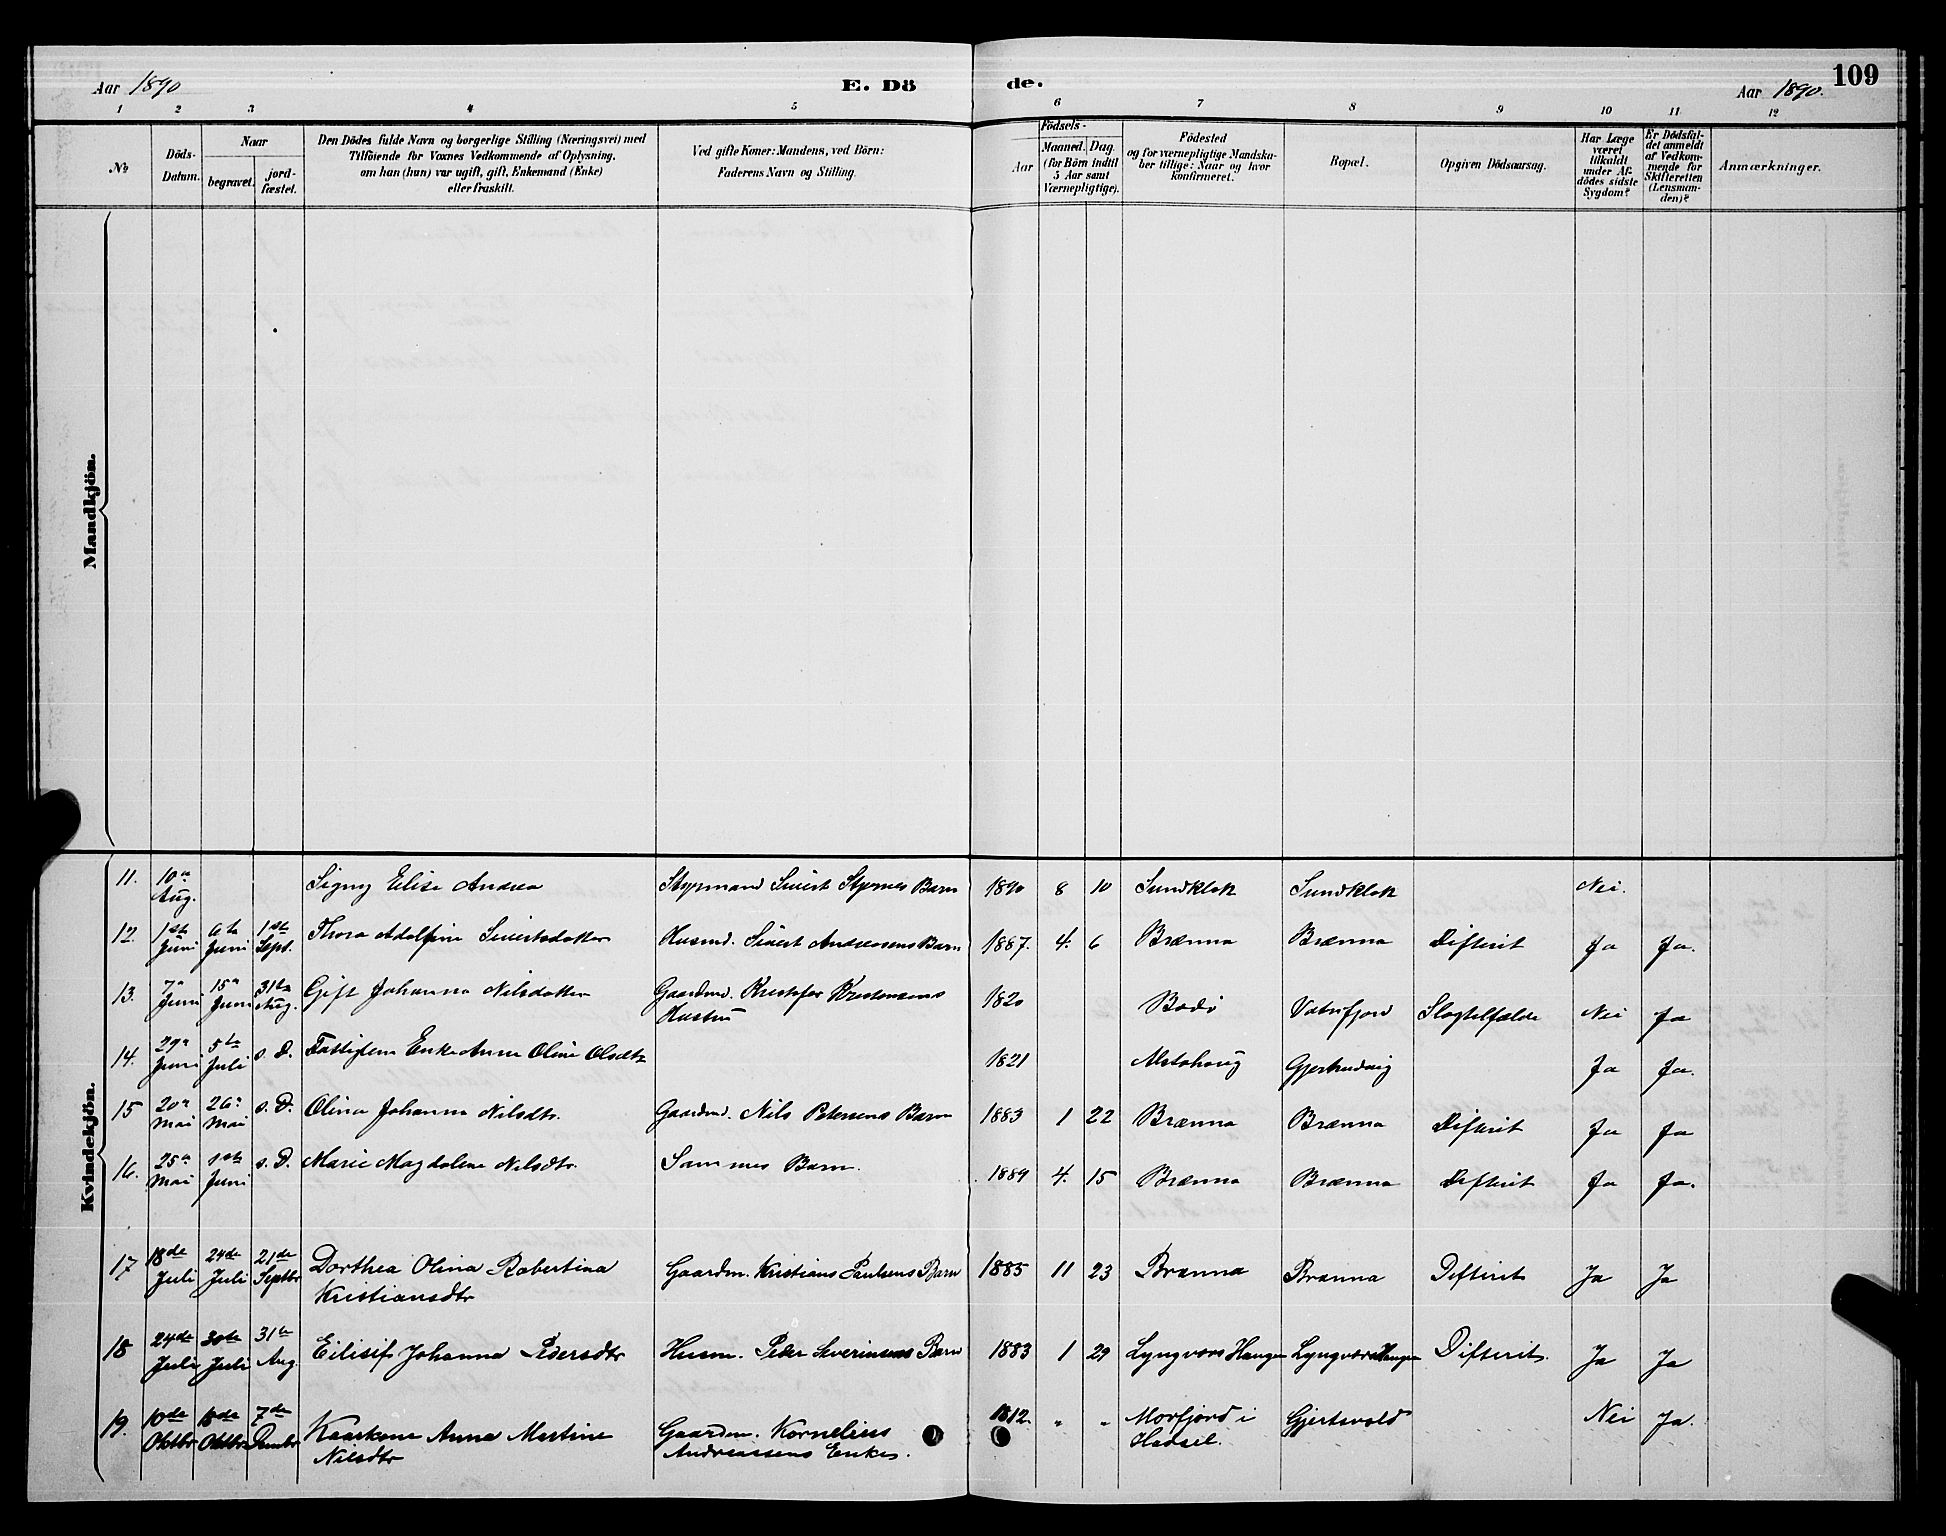 Aar 1890
E. Dö
de.
Aar 1890.
109
1 2 3 4 5 6 7 8 9 10 11 12
No
Döds-
Datum.
Naar
begravet.
jord-
fæstet.
Den Dödes fulde Navn og borgerlige Stilling (Næringsvei) med
Tilföiende for Voxnes Vedkommende af Oplysning,
om han (hun) var ugift, gift, Enkemand (Enke)
eller fraskilt.
Ved gifte Koner: Mandens, ved Börn:
Faderens Navn og Stilling.
Födsels-
Aar
Maaned. Dag.
(for Börn indtil
5 Aar samt
Værnepligtige).
Födested
og for værnepligtige Mandska-
ber tillige: Naar og hvor
konfirmeret.
Bopæl.
Opgiven Dödsaarsag.
Har Læge
været
tilkaldt
under Af-
dödes sidste
Sygdom?
Er Dödsfal-
det anmeldt
af Vedkom-
mende for
Skifteretten
(Lensman-
den)?
Anmærkninger.
Mandkjön.
Kvindekjön.
11. 10de Aug. Signy Elise Andrea Styrmand Sivert Barn 1890 8 10 Sundklak Sundklak Nei.
12. 1ste Juni 6te Juni 1ste Sept. Thora Adolfine Sivertsdatter Husmd. Sivert Andreasens Barn 1887. 4. 6 Brænna Brænna Difterit Ja Ja.
13. 7de Juni 15de Juni 31te Aug. Gift Johanna Nilsdatter Gaardmd. Kristofer Kristensens 1820 Bodö Vatnfjord Slagtilfælde Nei Ja
Hustru
14. 29de Juni 5te Juli s. D. Fattiglem Enke Anne Oline Olsdtr 1821 Alstahoug Ja Ja.
15 20de Mai 26de Mai s. D. Olina Johanna Nilsdtr. Gaardmd. Nils Petersens Barn 1883 1 22 Brænna Brænna Difterit Ja Ja
16. 25de Mai 1ste Juni s. D. Marie Magdalene Nilsdtr. Sammes Barn. 1889 4. 15 Brænna Brænna Difterit Ja Ja.
17 18de Juli 24de Juli 21de Septbr Dorthea Olina Robertina Gaardm. Kristians Paulsens Barn 1885 11 23 Brænna Brænna Difterit Ja Ja
Kristiansdtr
18 24de Juli 30te Juli 31te Aug. Eilisif Johanna Pedersdtr Husm. Peder Severinsens Barn 1883 1 29 Lyngvær Haugen Lyngvær Haugen Difterit. Ja Ja
19. 10de Oktbr 18de Oktbr 7de Kaarkone Anna Martine Gaardm. Kornelius 1812. " " Morfjord i Gjertsvold Nei Ja.
Nilsdtr Andreassens Enke. Hadsel.